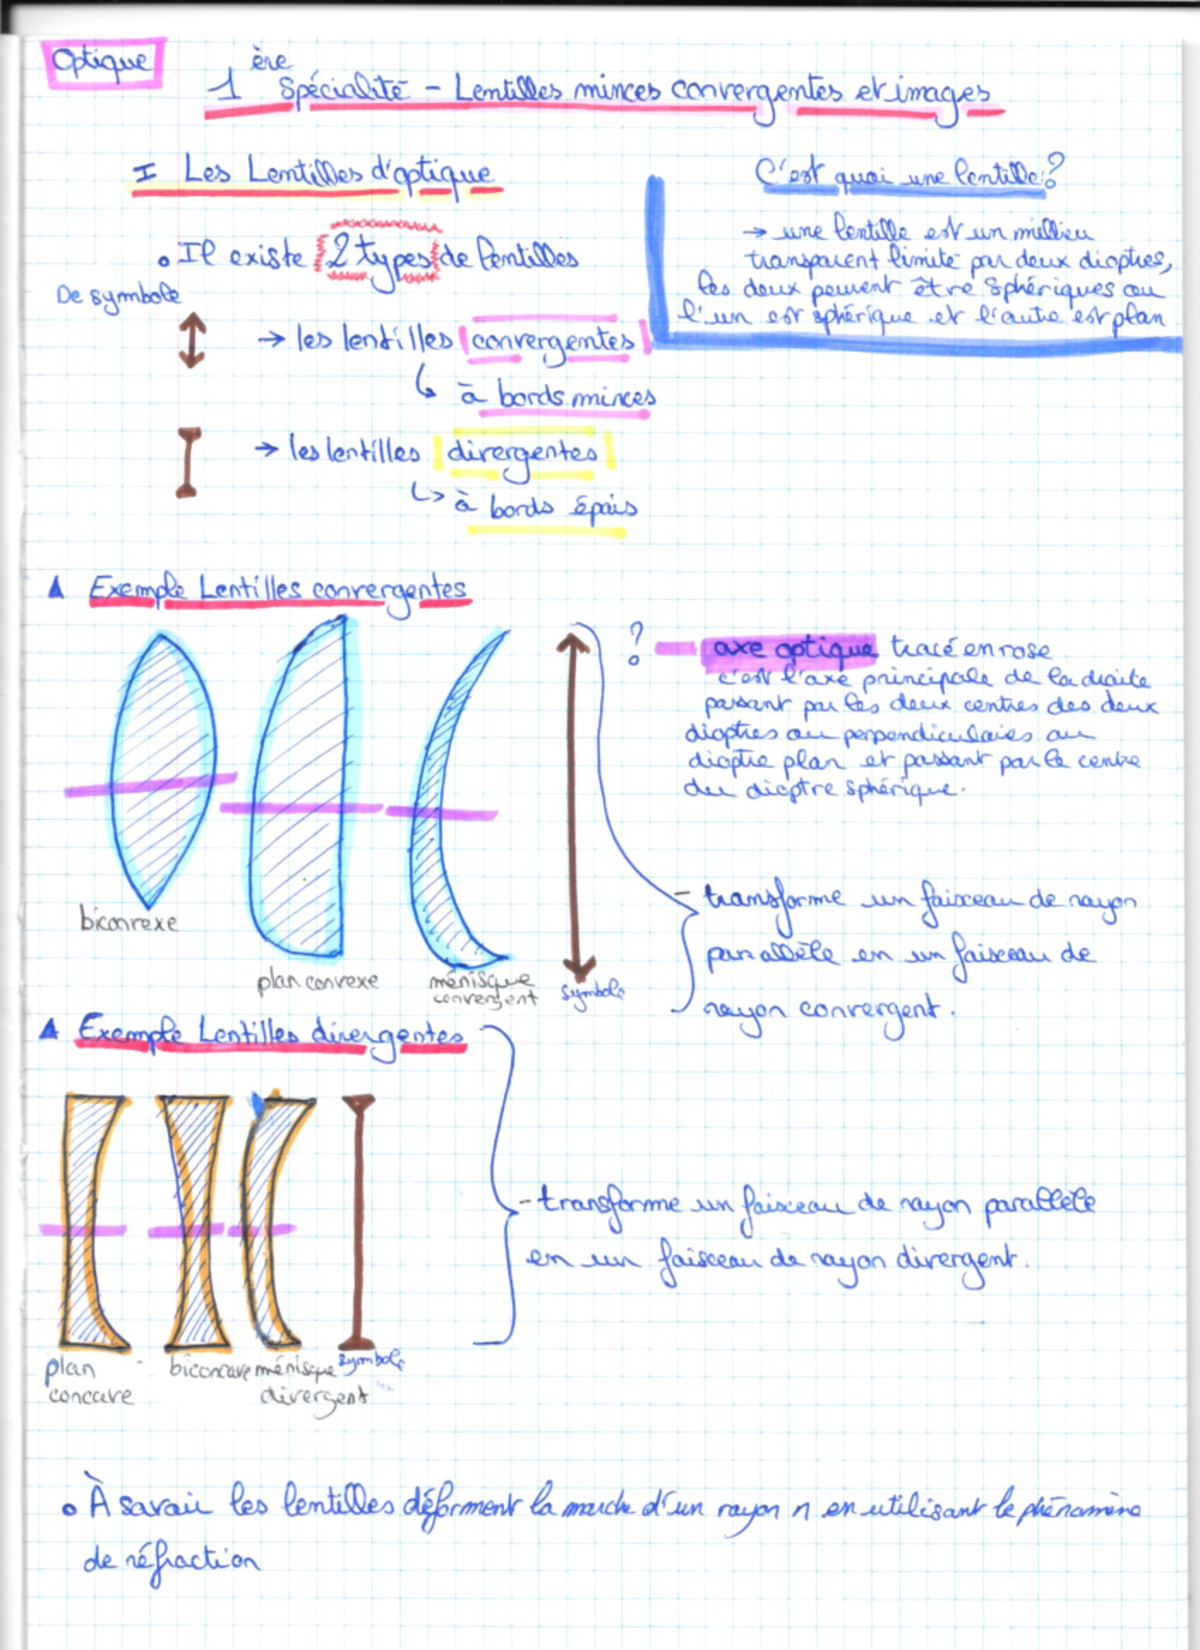 Optique
1ère Spécialité - Lentilles minces convergentes et images
I Les Lentilles d'optique
C'est quoi une lentille?
→ une lentille est un millieu
transparent limité par deux dioptres,
les deux peuvent être sphériques ou
l'un est sphérique et l'autre est plan
• Il existe 2 types de lentilles
De symbole
→ les lentilles convergentes
↳ à bords minces
→ les lentilles divergentes
↳ à bords épais
▲ Exemple Lentilles convergentes
? axe optique tracé en rose
c'est l'axe principale de la droite
passant par les deux centres des deux
dioptres ou perpendiculaires au
dioptre plan et passant par le centre
du dioptre sphérique.
biconvexe
plan convexe
ménisque
convergent
symbole
- transforme un faisceau de rayon
parallèle en un faisceau de
rayon convergent.
▲ Exemple Lentilles divergentes
- transforme un faisceau de rayon parallèle
en un faisceau de rayon divergent.
plan
concave
biconcave
ménisque
divergent
symbole
• À savoir les lentilles déforment la marche d'un rayon n en utilisant le phénomène
de réfraction